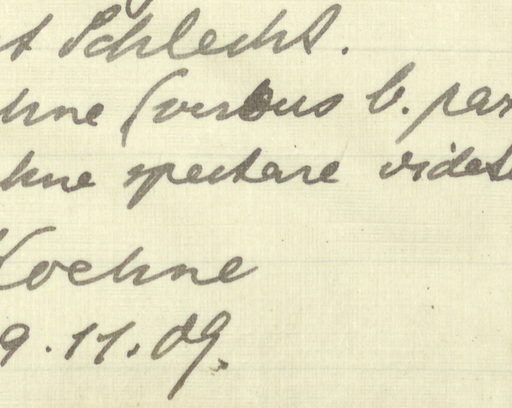 t Schlecht.
hne (versus b. par
hne spectare videt
Koehne
9.11.09.